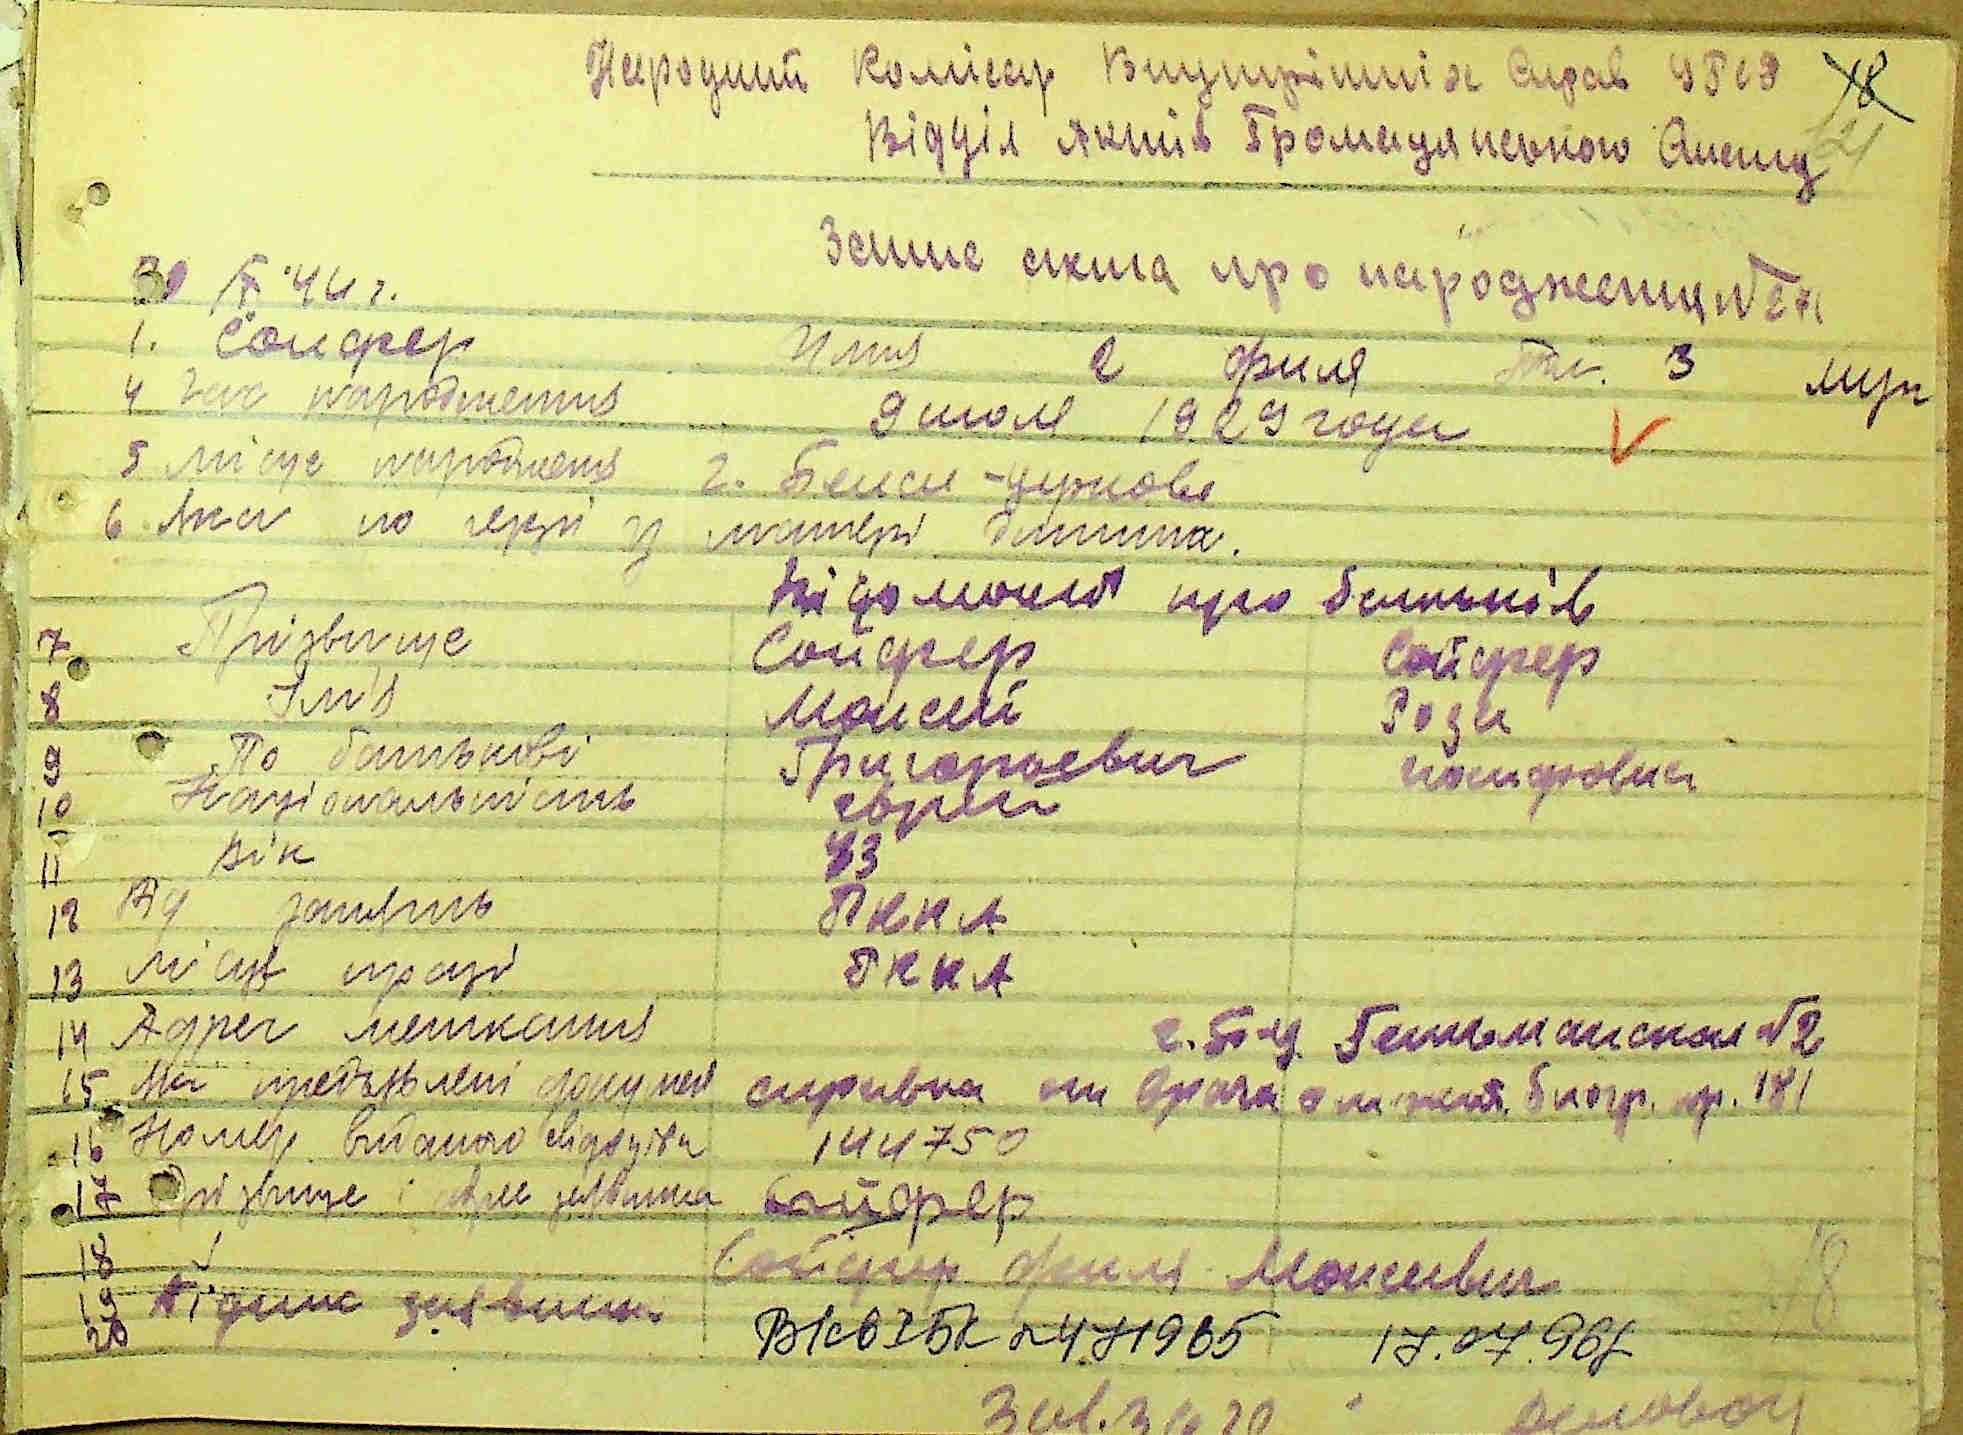 Народний Комісар Внутрішніх Справ УРСР 18
Відділ Актів Громадянського Стану 21
Запис акта про народження №271
30 X 44 г.
1. Сойфер Имя 2 Филя Пол. 3 муж
4 Час народження 9 июля 1929 года
5 місце народження г. Белая-Церковь
6 Яка по черзі у матері дитина.
Відомості про батьків
7 Прізвище Сойфер Сойфер
8 Ім'я Моисей Роза
9 По батькові Григорьевич
10 Національність еврей
11 Вік 43
12 занять РККА
13 Місце праці РККА
14 Адрес мешкання г. Б-Ц. Гетьманская №2
15 Які предъявлені докумен справка от врача пр. 181
16 Номер виданого свідоцтва 144750
17 Прізвище і адрес заявника Сойфер
18 Сойфер Филя Моисеевич
19 Підпис заявника
20 17.07.96г
Зав. ЗАГС